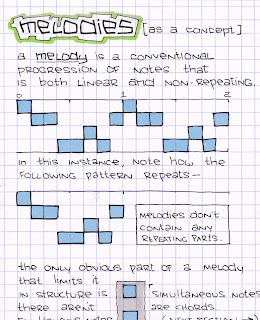 melodies [as a concept]
a melody is a conventional
progression of notes that
is both linear and non-repeating.
0 1 2
in this instance, note how the
following pattern repeats—
melodies don't
contain any
repeating parts.
the only obvious part of a melody
that limits it
in structure is
there aren't
simultaneous notes
are chords.